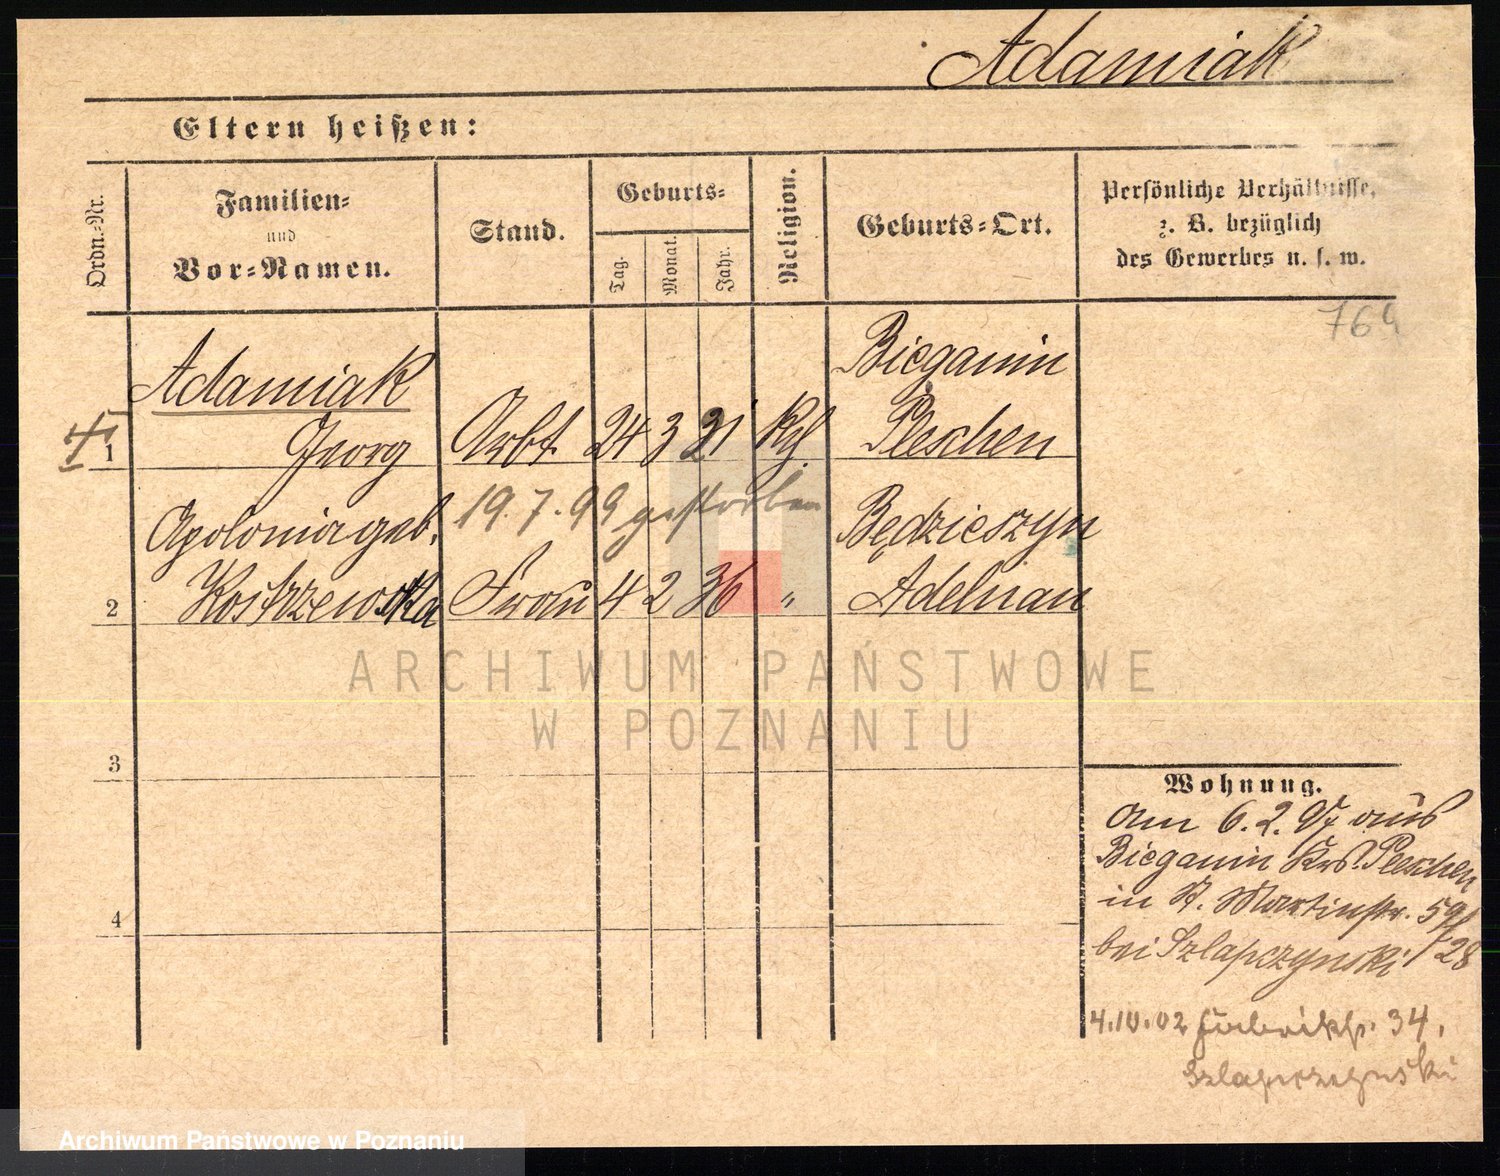 Adamiak
Eltern heißen:
Ordn.-Nr.
Familien-
und
Vor-Namen.
Stand.
Geburts-
Tag.
Monat.
Jahr.
Religion.
Geburts-Ort.
Persönliche Verhältnisse,
z. B. bezüglich
des Gewerbes u. s. w.
764
Adamiak
Bieganin
1 Georg Arbt. 24 3 21 kth Pleschen
19.7.99 gestorben
Apolonia geb. Będzieszyn
2 Kostrzewska Frau 4 2 36 " Adelnau
ARCHIWUM PAŃSTWOWE
W POZNANIU
3
Wohnung.
am 6.2.97 aus
Bieganin Krs. Pleschen
in St. Martinstr. 59/28
bei Szlapczynski
4
4.10.02 Fabrikstr. 34.
Szlapczynski
Archiwum Państwowe w Poznaniu